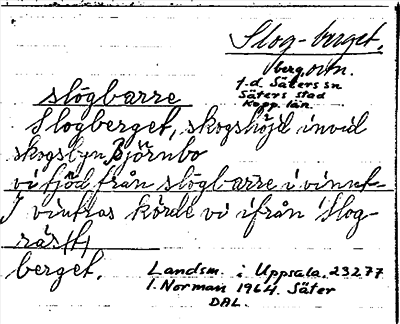 Slog-berget,
berg, ovn.
f.d. Säters sn
Säters stad
Kopp. län.
slōgbarre
Slogberget, skogshöjd invid
skogsbyn Björnbo
vi från slōgbarre i
I vintras körde vi ifrån Slog-
berget.
Landsm. i Uppsala. 23277
I. Norman 1964. Säter
DAL.